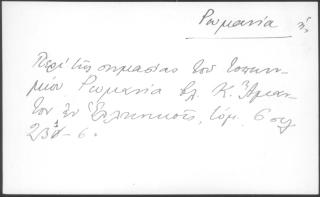 Ρωμανία ἡ
Περὶ τῆς σημασίας τοῦ τοπωνυ-
μίου Ρωμανία βλ. Κ. Ἄμαν-
τον ἐν Ἑλληνικοῖς, τόμ. 6 σελ
231-6.